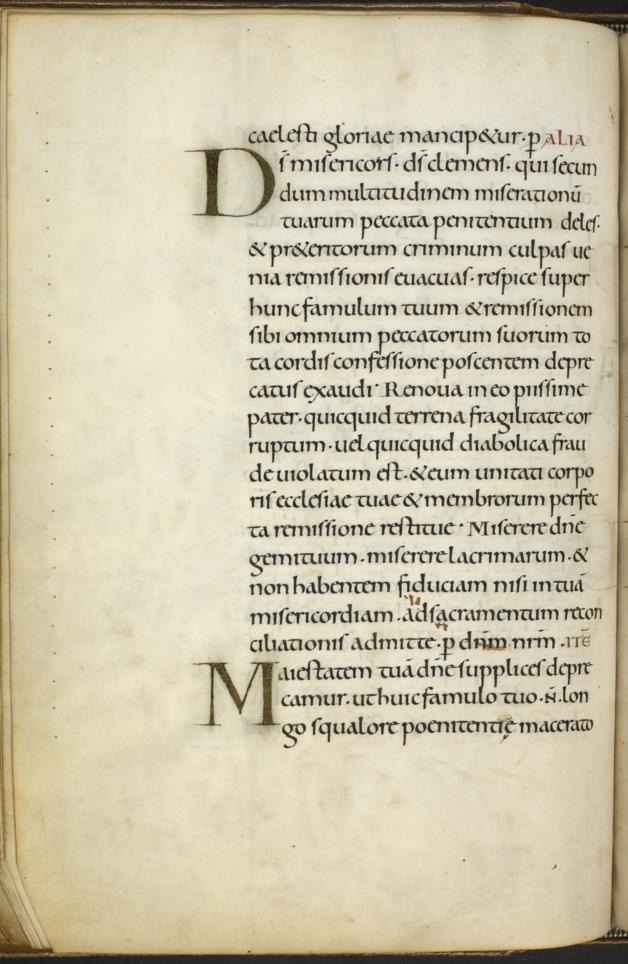 caelesti gloriae mancip&ur · p̄ ALIA
Ds̄ misericors · ds̄ clemens · qui secun
dum multitudinem miserationū
tuarum peccata penitentium deles ·
& pr&eritorum criminum culpas ue
nia remissionis euacuas · respice super
hunc famulum tuum & remissionem
sibi omnium peccatorum suorum to
ta cordis confessione poscentem depre
catus exaudi · Renoua in eo piissime
pater · quicquid terrena fragilitate cor
ruptum · uel quicquid diabolica frau
de uiolatum est · & eum unitati corpo
ris ecclesiae tuae & membrorum perfec
ta remissione restitue · Miserere dn̄e
gemituum · miserere lacrimarum · &
non habentem fiduciam nisi in tuā
misericordiam · ad sacramentum recon
ciliationis admitte · p̄ dnm̄ nrm̄ · ITĒ
Maiestatem tuā dn̄e supplices depre
camur · ut huic famulo tuo · N̄ · lon
go squalore poenitentię macerato